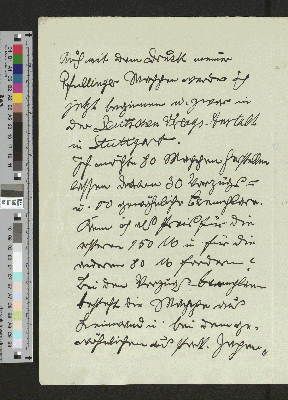 Auch mit dem Druck meiner
Pfullinger Mappen werde ich
jetzt beginnen u. zwar in
der Deutschen Verlags-Anstalt
in Stuttgart.
Ich möchte 80 Mappen herstellen
lassen davon 30 Vorzugs-
u. 50 gewöhnliche Exemplare.
Kann ich als Preis für die
ersteren 150 M u für die
anderen 80 M fordern?
Bei dem Vorzugs-Exemplaren
besteht die Mappe aus
Leinwand u. bei den ge-
wöhnlichen aus